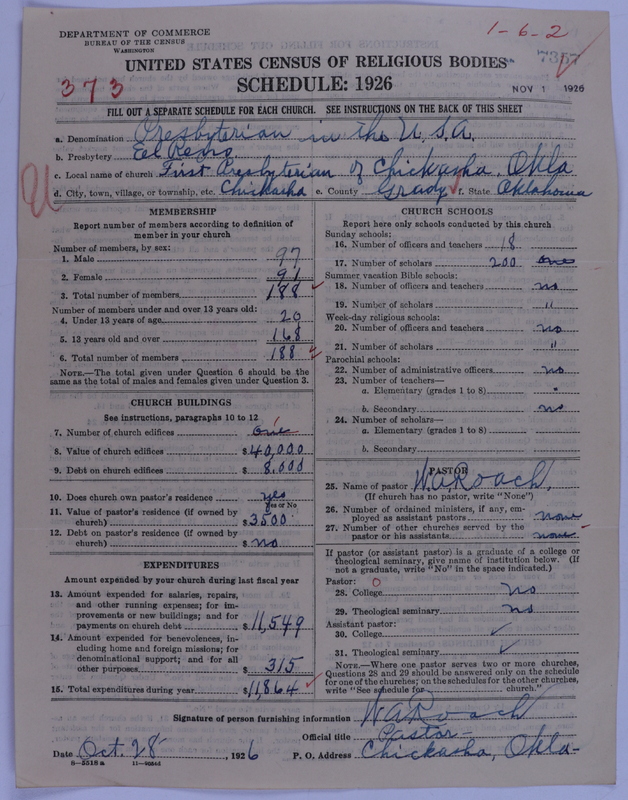 DEPARTMENT OF COMMERCE
BUREAU OF THE CENSUS
WASHINGTON
1-6-2
7357
UNITED STATES CENSUS OF RELIGIOUS BODIES
373
SCHEDULE: 1926
NOV 1 1926
FILL OUT A SEPARATE SCHEDULE FOR EACH CHURCH. SEE INSTRUCTIONS ON THE BACK OF THIS SHEET
a. Denomination Presbyterian in the U.S.A.
b. Presbytery El Reno
c. Local name of church First Presbyterian of Chickasha, Okla
d. City, town, village, or township, etc. Chickasha e. County Grady f. State Oklahoma
MEMBERSHIP
Report number of members according to definition of
member in your church
Number of members, by sex:
1. Male 97
2. Female 91
3. Total number of members 188
Number of members under and over 13 years old:
4. Under 13 years of age 20
5. 13 years old and over 168
6. Total number of members 188
NOTE.—The total given under Question 6 should be the
same as the total of males and females given under Question 3.
CHURCH BUILDINGS
See instructions, paragraphs 10 to 12
7. Number of church edifices one
8. Value of church edifices $40,000
9. Debt on church edifices $8,000
10. Does church own pastor's residence yes
Yes or No
11. Value of pastor's residence (if owned by
church) $3500
12. Debt on pastor's residence (if owned by
church) $ no
EXPENDITURES
Amount expended by your church during last fiscal year
13. Amount expended for salaries, repairs,
and other running expenses; for im-
provements or new buildings; and for
payments on church debt $11,549
14. Amount expended for benevolences, in-
cluding home and foreign missions; for
denominational support; and for all
other purposes $315
15. Total expenditures during year $11,864
CHURCH SCHOOLS
Report here only schools conducted by this church
Sunday schools:
16. Number of officers and teachers 18
17. Number of scholars 200
Summer vacation Bible schools:
18. Number of officers and teachers no
19. Number of scholars "
Week-day religious schools:
20. Number of officers and teachers no
21. Number of scholars "
Parochial schools:
22. Number of administrative officers no
23. Number of teachers—
a. Elementary (grades 1 to 8) "
b. Secondary no
24. Number of scholars—
a. Elementary (grades 1 to 8)
b. Secondary
PASTOR
25. Name of pastor W A Roach
(If church has no pastor, write "None")
26. Number of ordained ministers, if any, em-
ployed as assistant pastors none
27. Number of other churches served by the
pastor or his assistants none
If pastor (or assistant pastor) is a graduate of a college or
theological seminary, give name of institution below. (If
not a graduate, write "No" in the space indicated.)
Pastor: 0
28. College no
29. Theological seminary no
Assistant pastor:
30. College ✓
31. Theological seminary ✓
NOTE.—Where one pastor serves two or more churches,
Questions 28 and 29 should be answered only on the schedule
for one of the churches; on the schedules for the other churches,
write "See schedule for church."
Signature of person furnishing information W A Roach
Official title Pastor
Date Oct. 28, 1926 P. O. Address Chickasha, Okla-
8—5518 a